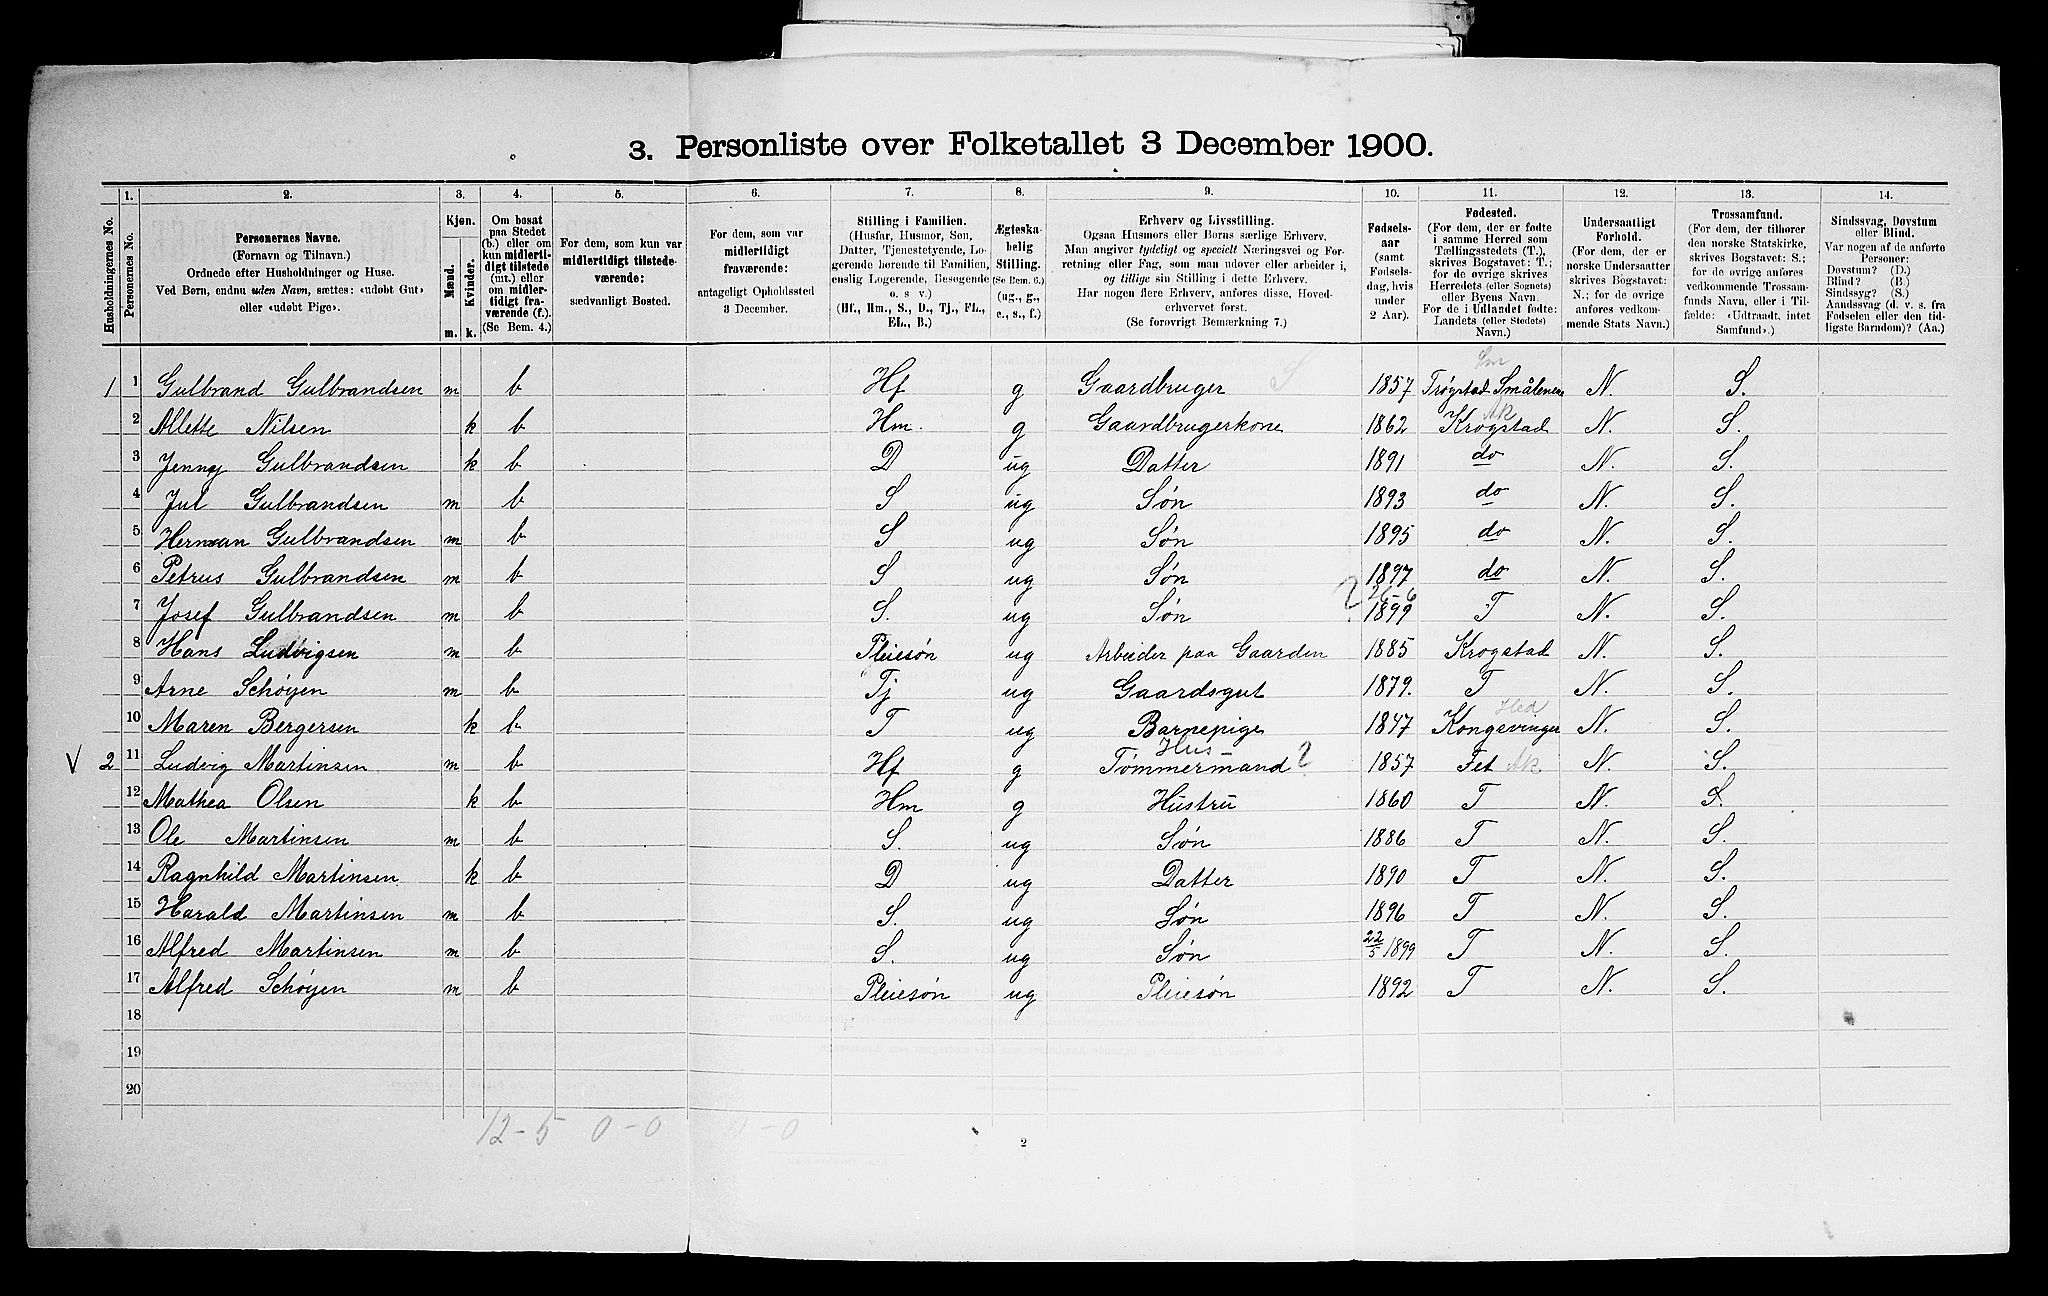 3. Personliste over Folketallet 3 December 1900.
Husholdningernes No.
1. Personernes No.
2. Personernes Navne. (Fornavn og Tilnavn.) Ordnede efter Husholdninger og Huse. Ved Børn, endnu uden Navn, sættes: «udøbt Gut» eller «udøbt Pige».
3. Kjøn. Mænd. m. Kvinder. k.
4. Om bosat paa Stedet (b.) eller om kun midlertidigt tilstede (mt.) eller om midlertidigt fraværende (f.). (Se Bem. 4.)
5. For dem, som kun var midlertidigt tilstedeværende: sædvanligt Bosted.
6. For dem, som var midlertidigt fraværende: antageligt Opholdssted 3 December.
7. Stilling i Familien. (Husfar, Husmor, Søn, Datter, Tjenestetyende, Logerende hørende til Familien, enslig Logerende, Besøgende o. s v.) (Hf., Hm., S., D., Tj., FL., EL., B.)
8. Ægteskabelig Stilling. (Se Bem. 6.) (ug., g., e., s., f.)
9. Erhverv og Livsstilling. Ogsaa Husmors eller Børns særlige Erhverv. Man angiver tydeligt og specielt Næringsvei og Forretning eller Fag, som man udøver eller arbeider i, og tillige sin Stilling i dette Erhverv. Har nogen flere Erhverv, anføres disse, Hovederhvervet først. (Se forøvrigt Bemærkning 7.)
10. Fødselsaar (samt Fødselsdag, hvis under 2 Aar).
11. Fødested. (For dem, der er fødte i samme Herred som Tællingsstedets (T.), skrives Bogstavet: T.; for de øvrige skrives Herredets (eller Sognets) eller Byens Navn. For de i Udlandet fødte: Landets (eller Stedets) Navn.)
12. Undersaatligt Forhold. (For dem, der er norske Undersaatter skrives Bogstavet: N.; for de øvrige anføres vedkommende Stats Navn.)
13. Trossamfund. (For dem, der tilhører den norske Statskirke, skrives Bogstavet: S.; for de øvrige anføres vedkommende Trossamfunds Navn, eller i Tilfælde: «Udtraadt, intet Samfund».)
14. Sindssvag, Døvstum eller Blind. Var nogen af de anførte Personer: Døvstum? (D.) Blind? (B.) Sindssyg? (S.) Aandssvag (d. v. s. fra Fødselen eller den tidligste Barndom)? (Aa.)
1 1 Gulbrand Gulbrandsen m b Hf g Gaardbruger S 1857 Trøgstad Smålenene Sm N. S.
2 Allette Nilsen k b Hm. g Gaardbrugerkone 1862 Krogstad Ak N. S.
3 Jenny Gulbrandsen k b D ug Datter 1891 do N. S.
4 Jul Gulbrandsen m b S ug Søn 1893 do N. S.
5 Herman Gulbrandsen m b S ug Søn 1895 do N. S.
6 Petrus Gulbrandsen m b S ug Søn 1897 do N. S.
7 Josef Gulbrandsen m b S. ug Søn 26-6 1899 T N. S.
8 Hans Ludvigsen m b Pleiesøn ug Arbeider paa Gaarden 1885 Krogstad N. S.
9 Arne Schøyen m b Tj ug Gaardsgut 1879. T N. S.
10 Maren Bergersen k b T ug Barnepige 1847 Kongsvinger Hed N. S.
V 2 11 Ludvig Martinsen m b Hf g Hus Tømmermand ? 1857 Fet Ak N. S.
12 Mathea Olsen k b Hm g Hustru 1860 T N. S.
13 Ole Martinsen m b S. ug Søn 1886 T N. S.
14 Ragnhild Martinsen k b D ug Datter 1890 T N. S.
15 Harald Martinsen m b S. ug Søn 1896 T N. S.
16 Alfred Martinsen m b S. ug Søn 22/5 1899 T N. S.
17 Alfred Schøyen m b Pleiesøn ug Pleiesøn 1892 T N. S.
18
19
20
12-5 0-0 0-0
2